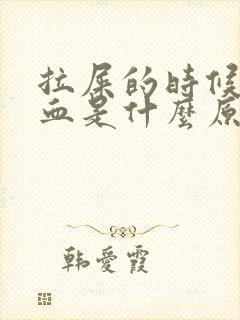 拉屎的時候
血是什麼原
韩愛霞